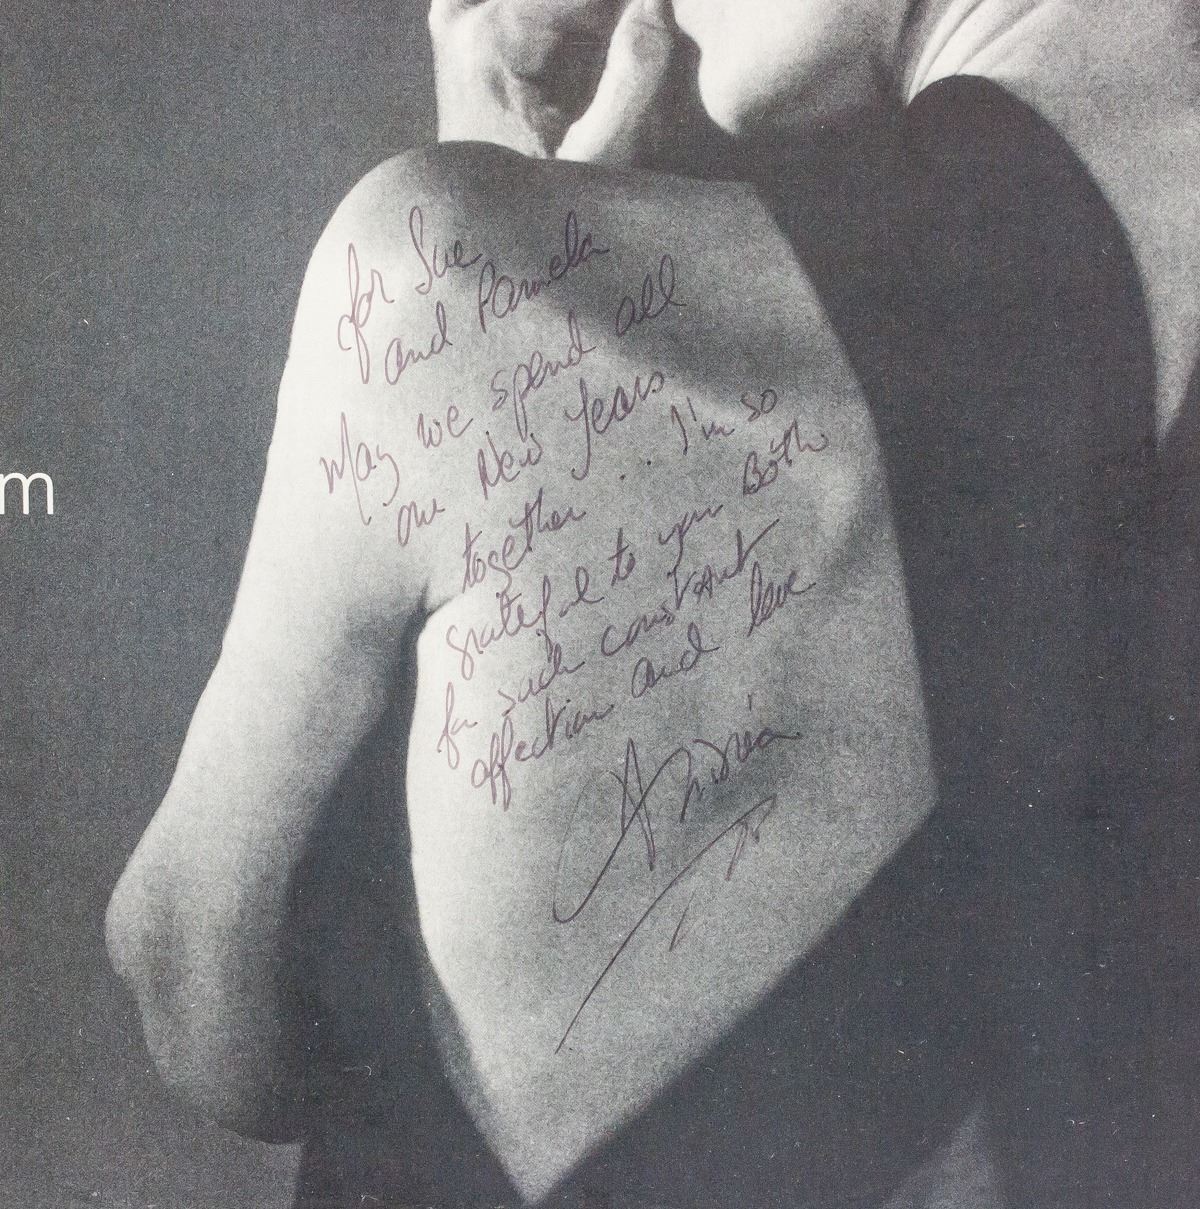 for Sue
and Pamela
May we spend all
our New Years
together... I'm so
grateful to you Both
for such constant
affection and love
m